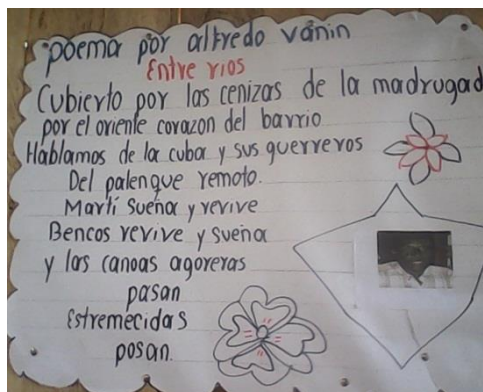 poema por alfredo vanin
Entre rios
Cubierto por las cenizas de la madrugad
por el oriente corazon del barrio
Hablamos de la cuba y sus guerreros
Del palenque remoto.
Martí sueña y revive
Bencos revive y sueña
y las canoas agoreras
pasan
Estremecidas
posan.